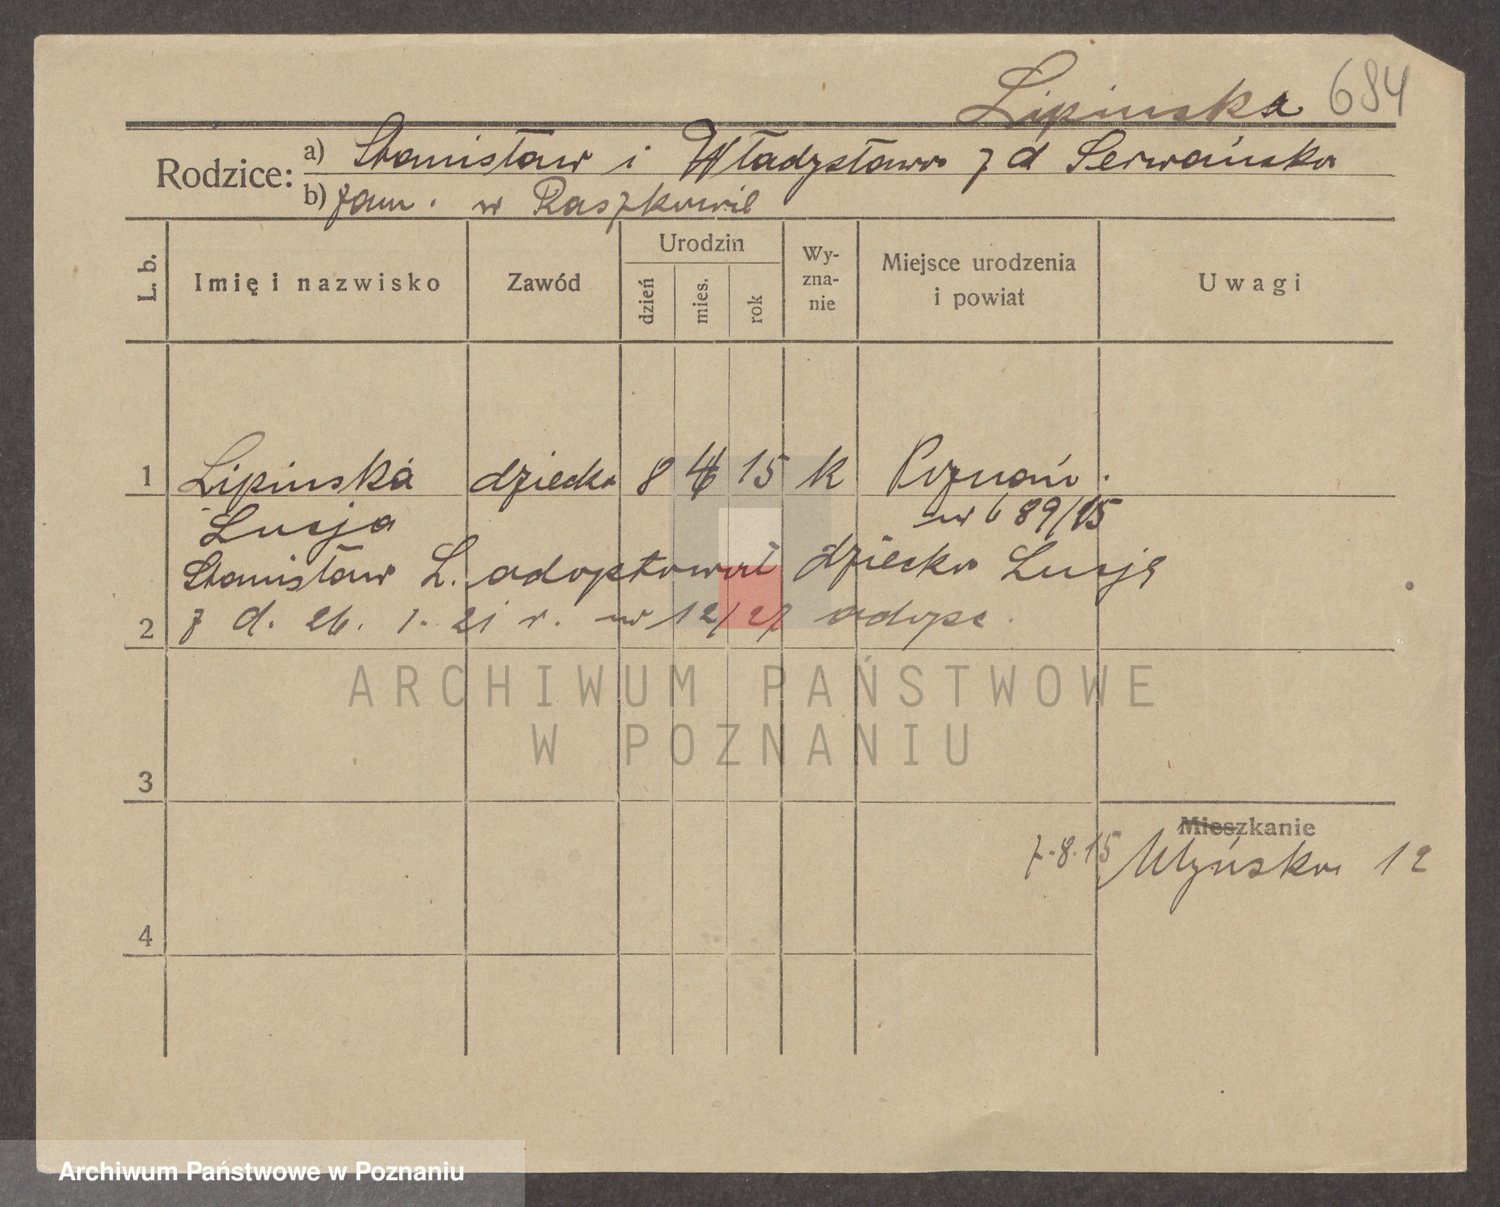 Lipinska 684
Rodzice: a) Stanisław i Władysława z d Serwańska
b) zam. w Raszkowie
L. b. Imię i nazwisko Zawód Urodzin dzień mies. rok Wyznanie Miejsce urodzenia i powiat Uwagi
1 Lipinska dziecko 8 15 k Poznań.
Lucja nr 689/15
Stanisław L. adoptował dziecko Lucję
2 z d. 26. 1. 21 r. nr 12/27 adopc.
ARCHIWUM PAŃSTWOWE
W POZNANIU
3
Mieszkanie
7.8.15 Młyńska 12
4
Archiwum Państwowe w Poznaniu